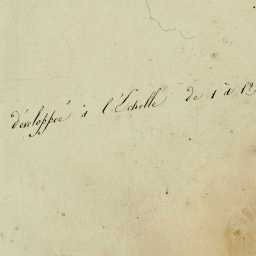 développée à l'Échelle de 1 à 12